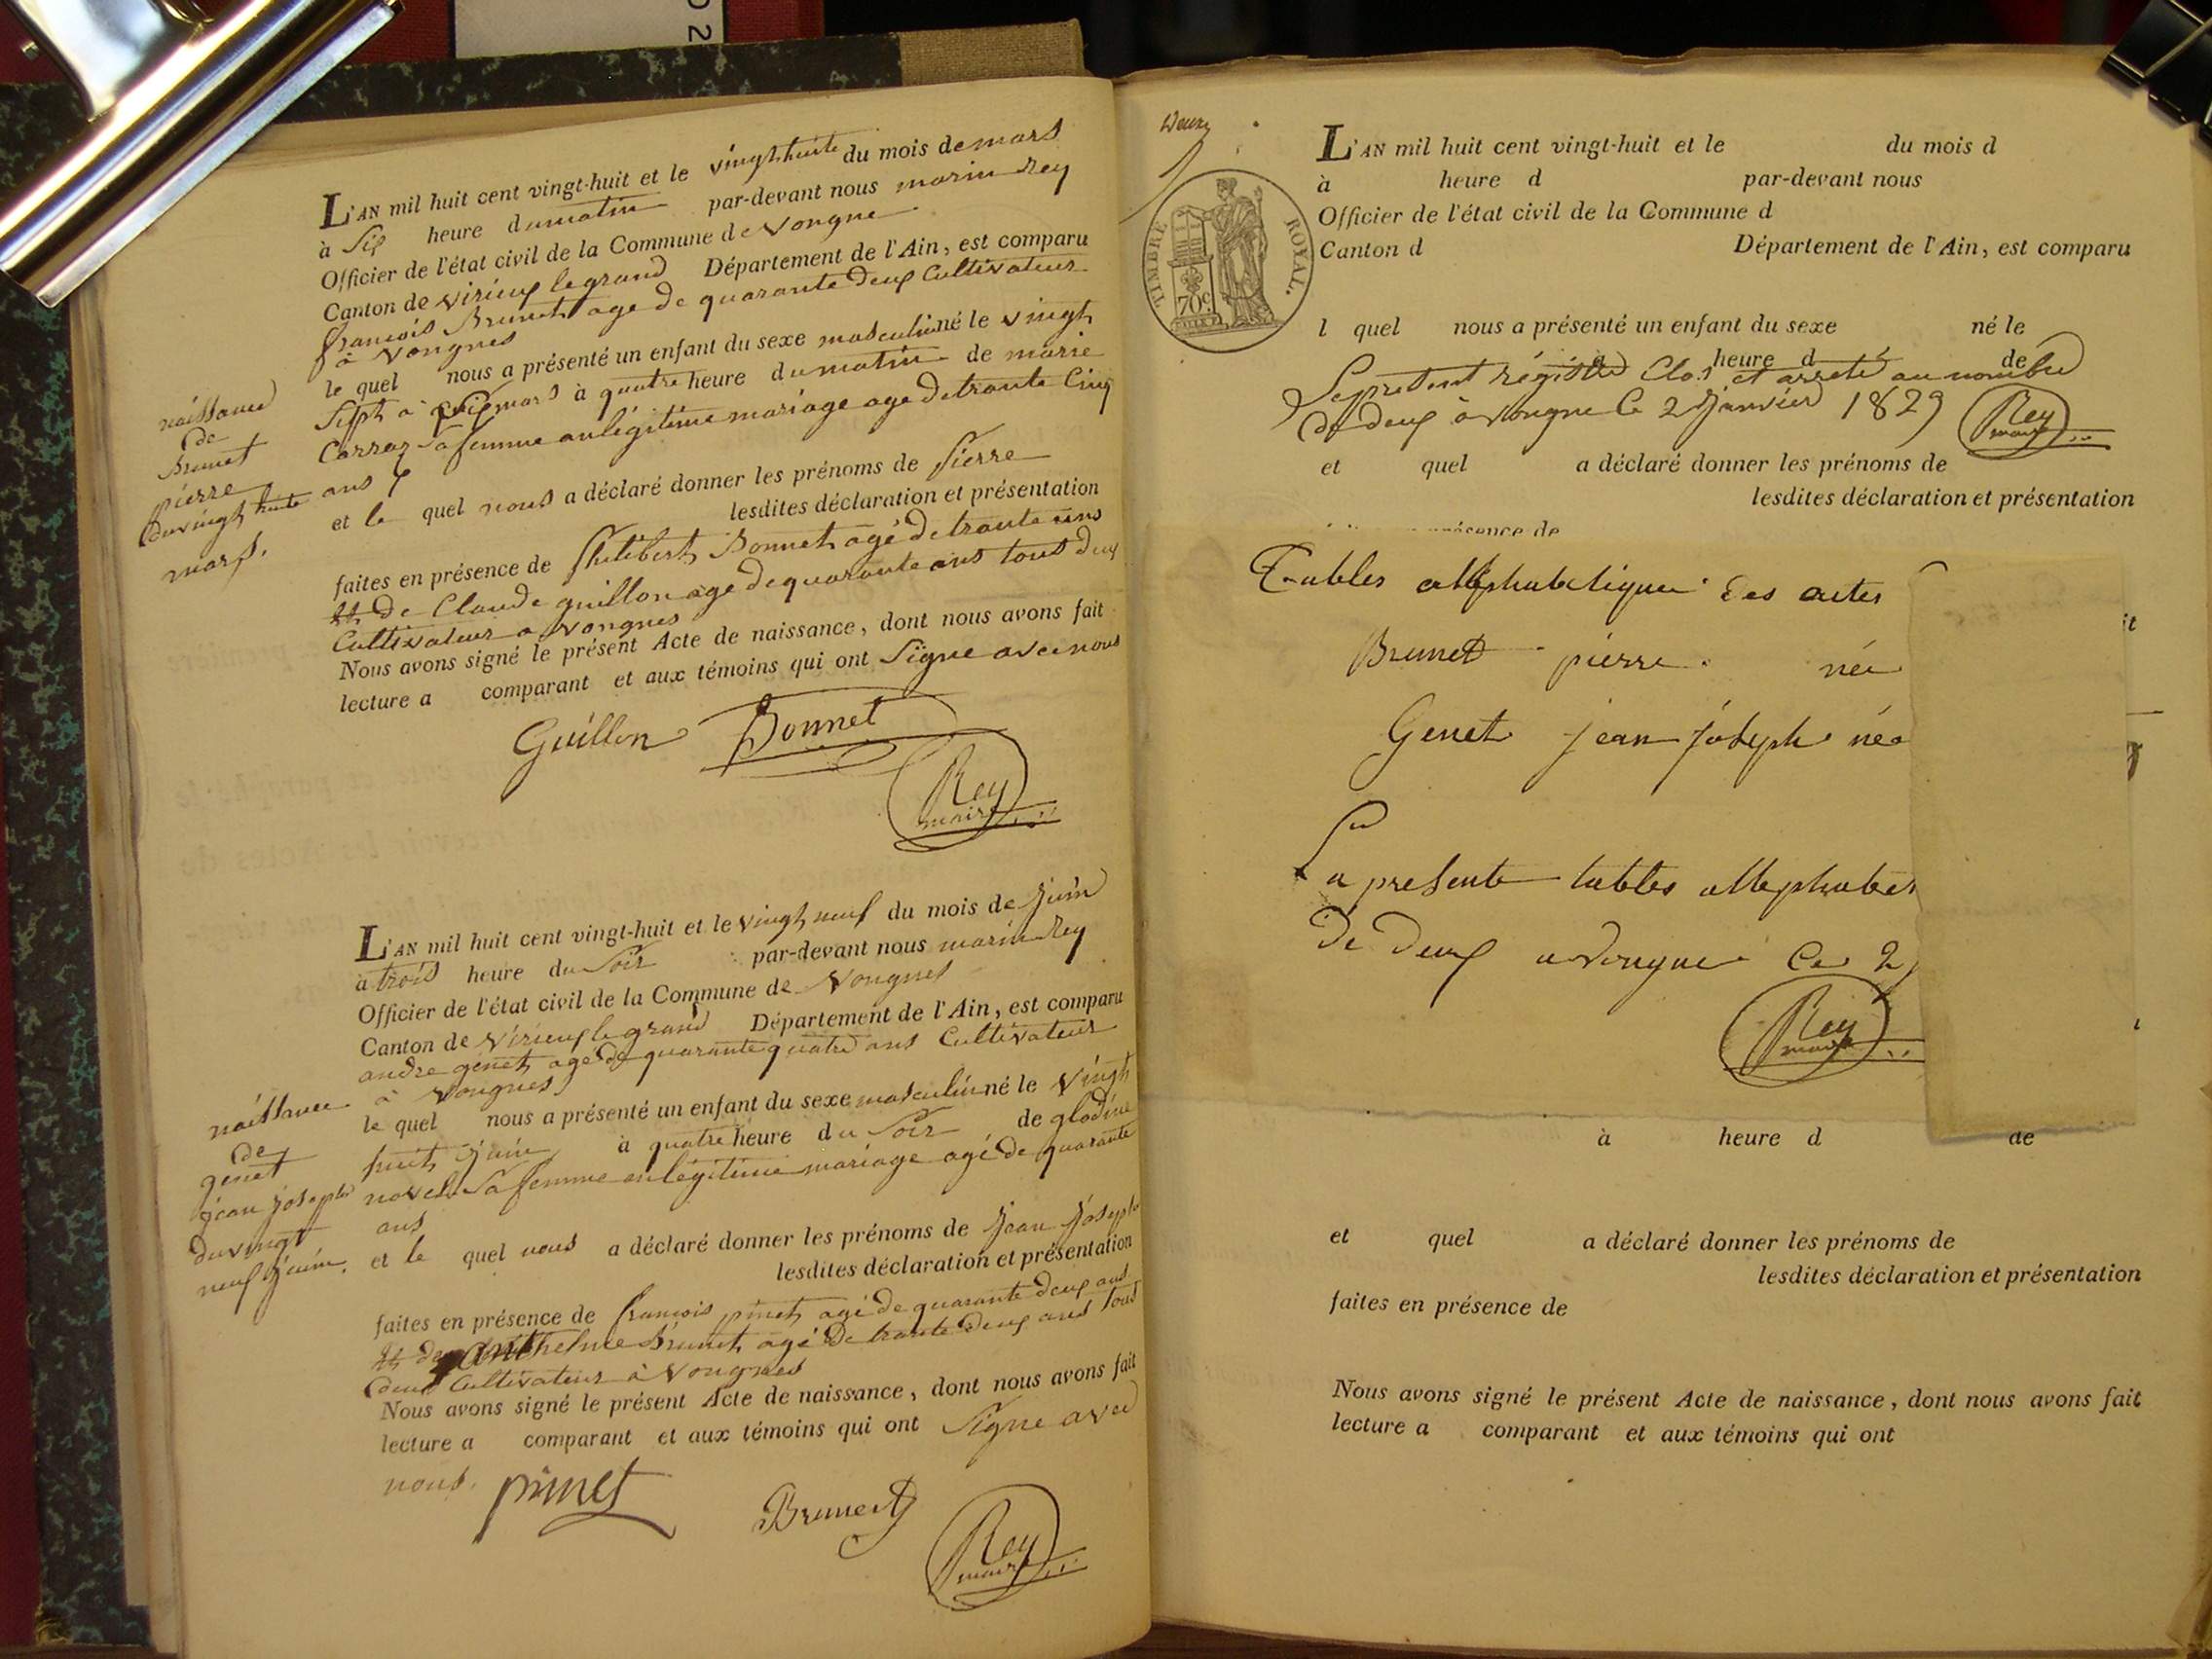 02
L'AN mil huit cent vingt-huit et le vingt huite du mois de mars
à Six heure du matin par-devant nous marin Rey
Officier de l'état civil de la Commune de Vongne
Canton de Virieux legrand Département de l'Ain, est comparu
francois Brunet age de quarante deux Cultivateur
à Vongnes
le quel nous a présenté un enfant du sexe masculin né le vingt
Sept à mars à quatre heure du matin de marie
Carraz Sa femme en légitime mariage age de trante Cinq
ans
et le quel nous a déclaré donner les prénoms de Pierre
lesdites déclaration et présentation
faites en présence de Philibert Bonnet agé de trante ans
et de Claude guillon age de quarante ans tous deux
Cultivateur a Vongnes
Nous avons signé le présent Acte de naissance, dont nous avons fait
lecture a comparant et aux témoins qui ont Signe avec nous
Guillon Bonnet
Rey
maire
naissance
de
Brunet
pierre
du vingt huite
mars.
L'AN mil huit cent vingt-huit et le vingt neuf du mois de Juin
à trois heure du Soir par-devant nous marin Rey
Officier de l'état civil de la Commune de Vongnes
Canton de Virieux le grand Département de l'Ain, est comparu
andre genet agé de quarante quatre ans Cultivateur
à Vongnes
le quel nous a présenté un enfant du sexe masculin né le Vingt
huit Juin à quatre heure du Soir de glodine
novel Sa femme en légitime mariage agé de quarante
ans
et le quel nous a déclaré donner les prénoms de Jean Joseph
lesdites déclaration et présentation
faites en présence de francois pinet agé de quarante deux ans
et de anthelme Brunet agé de trante deux ans tous
deux Cultivateur à Vongnes
Nous avons signé le présent Acte de naissance, dont nous avons fait
lecture a comparant et aux témoins qui ont Signe avec
nous.
pinet Brunet
Rey
maire
naissance
de
genet
jean joseph
du vingt
neuf juin.
TIMBRE ROYAL.
70c.
L'AN mil huit cent vingt-huit et le du mois d
à heure d par-devant nous
Officier de l'état civil de la Commune d
Canton d Département de l'Ain, est comparu
l quel nous a présenté un enfant du sexe né le
à heure d de
Le present régistre Clos et arreté au nombre
de deux à Vongne Ce 2 Janvier 1829
Rey
maire
et quel a déclaré donner les prénoms de
lesdites déclaration et présentation
présence de
Tables allphabetique des actes
Brunet pierre née
Genet jean joseph née
La presente tables allephabet
De Deux a Vongne Ce 2
Rey
maire
à heure d de
et quel a déclaré donner les prénoms de
lesdites déclaration et présentation
faites en présence de
Nous avons signé le présent Acte de naissance, dont nous avons fait
lecture a comparant et aux témoins qui ont